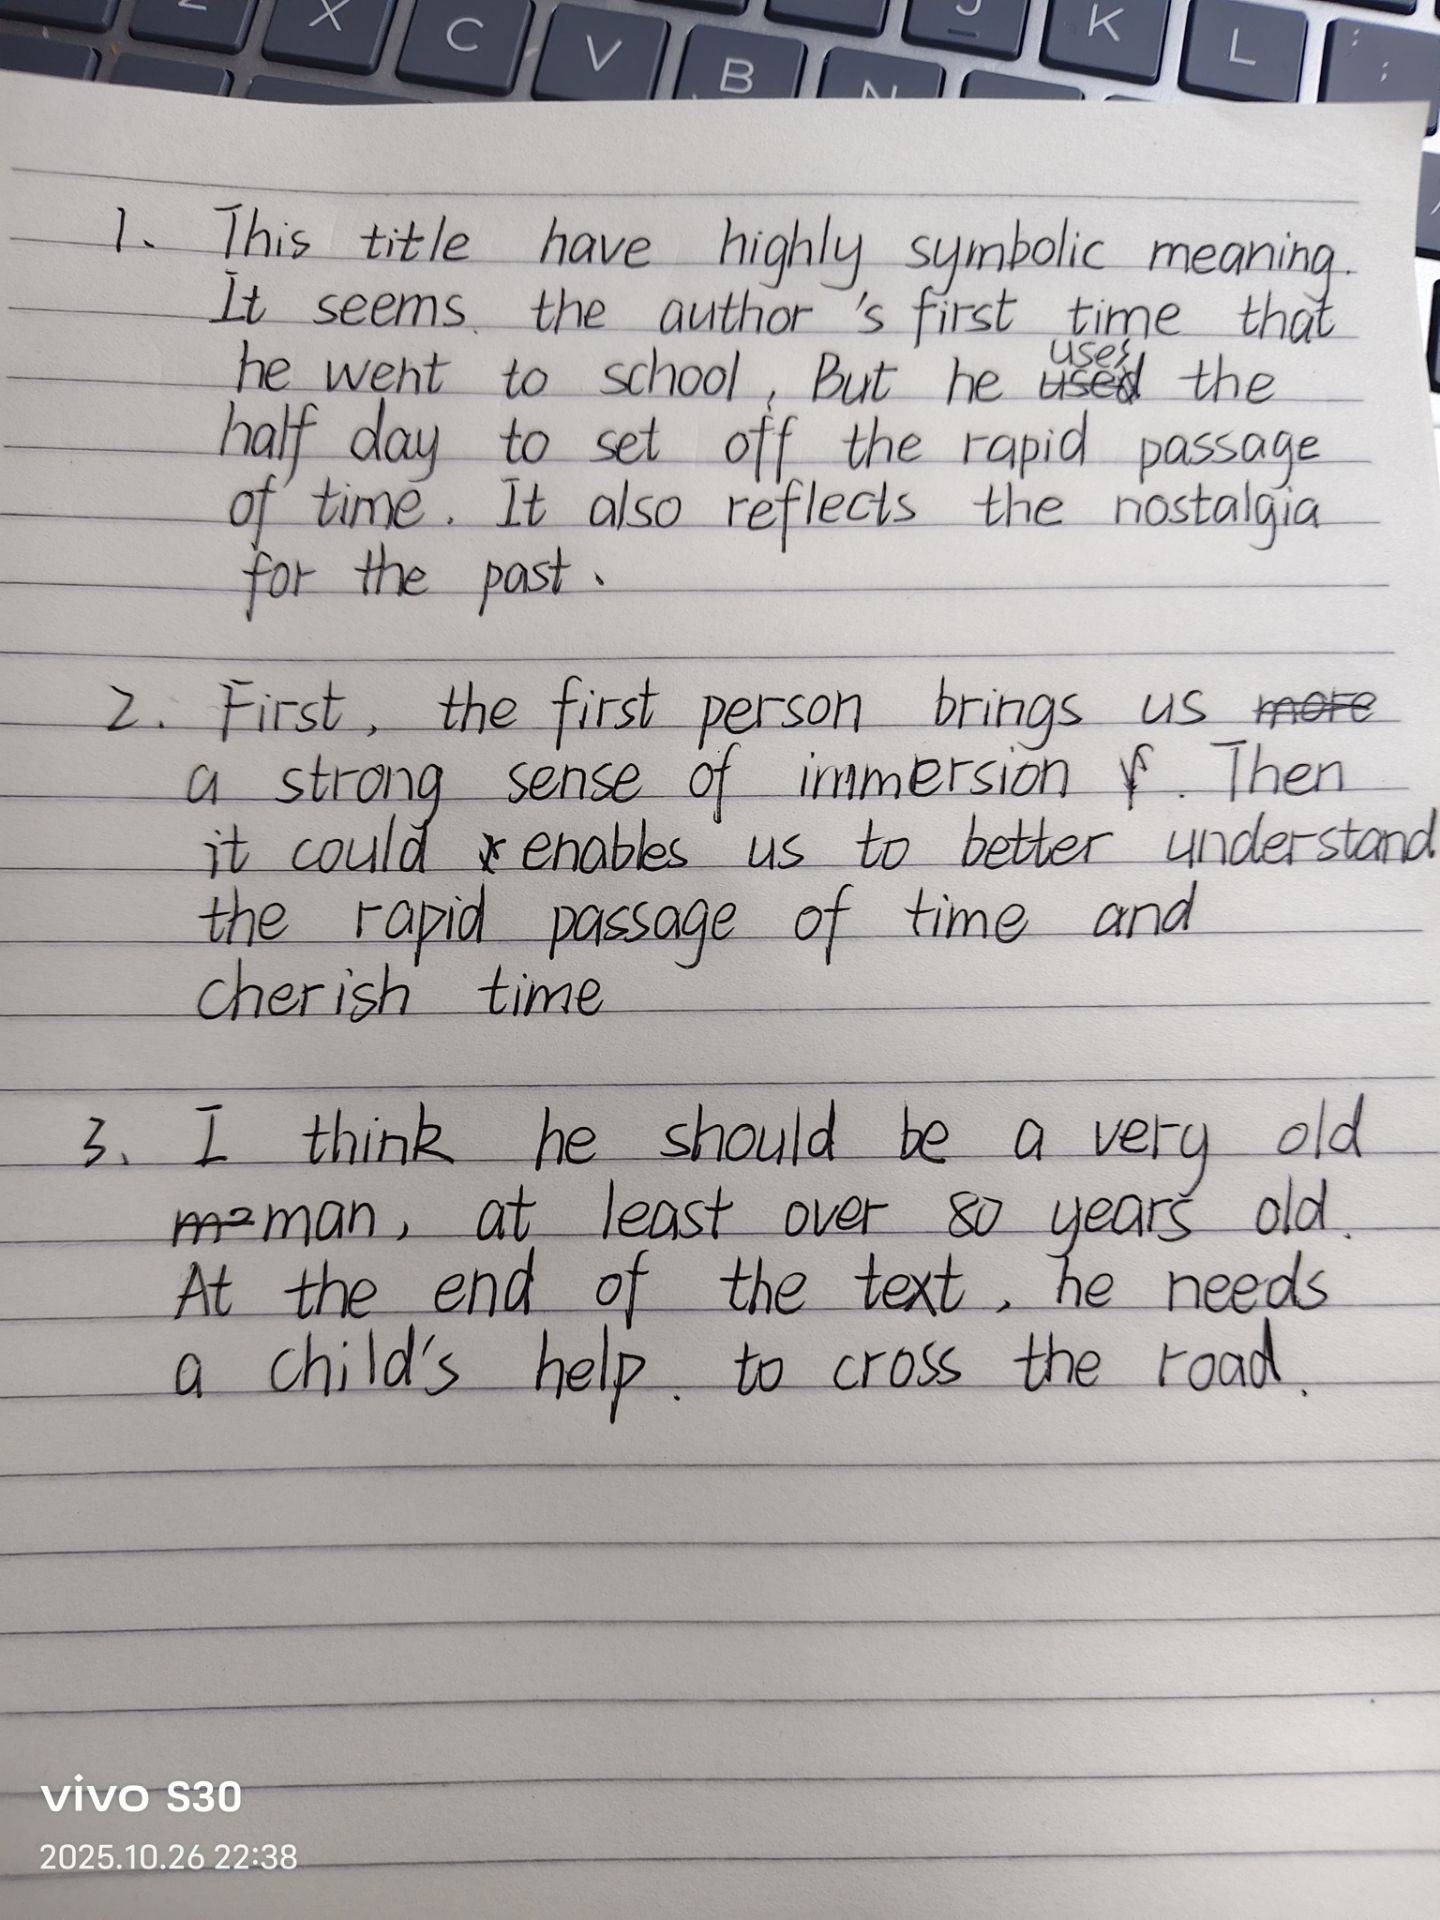 Z X C V B N J K L ; :
1. This title have highly symbolic meaning.
It seems the author's first time that
he went to school, But he uses the
half day to set off the rapid passage
of time. It also reflects the nostalgia
for the past.
2. First, the first person brings us more
a strong sense of immersion. Then
it could enables us to better understand
the rapid passage of time and
cherish time
3. I think he should be a very old
man, at least over 80 years old.
At the end of the text, he needs
a child's help. to cross the road.
vivo S30
2025.10.26 22:38